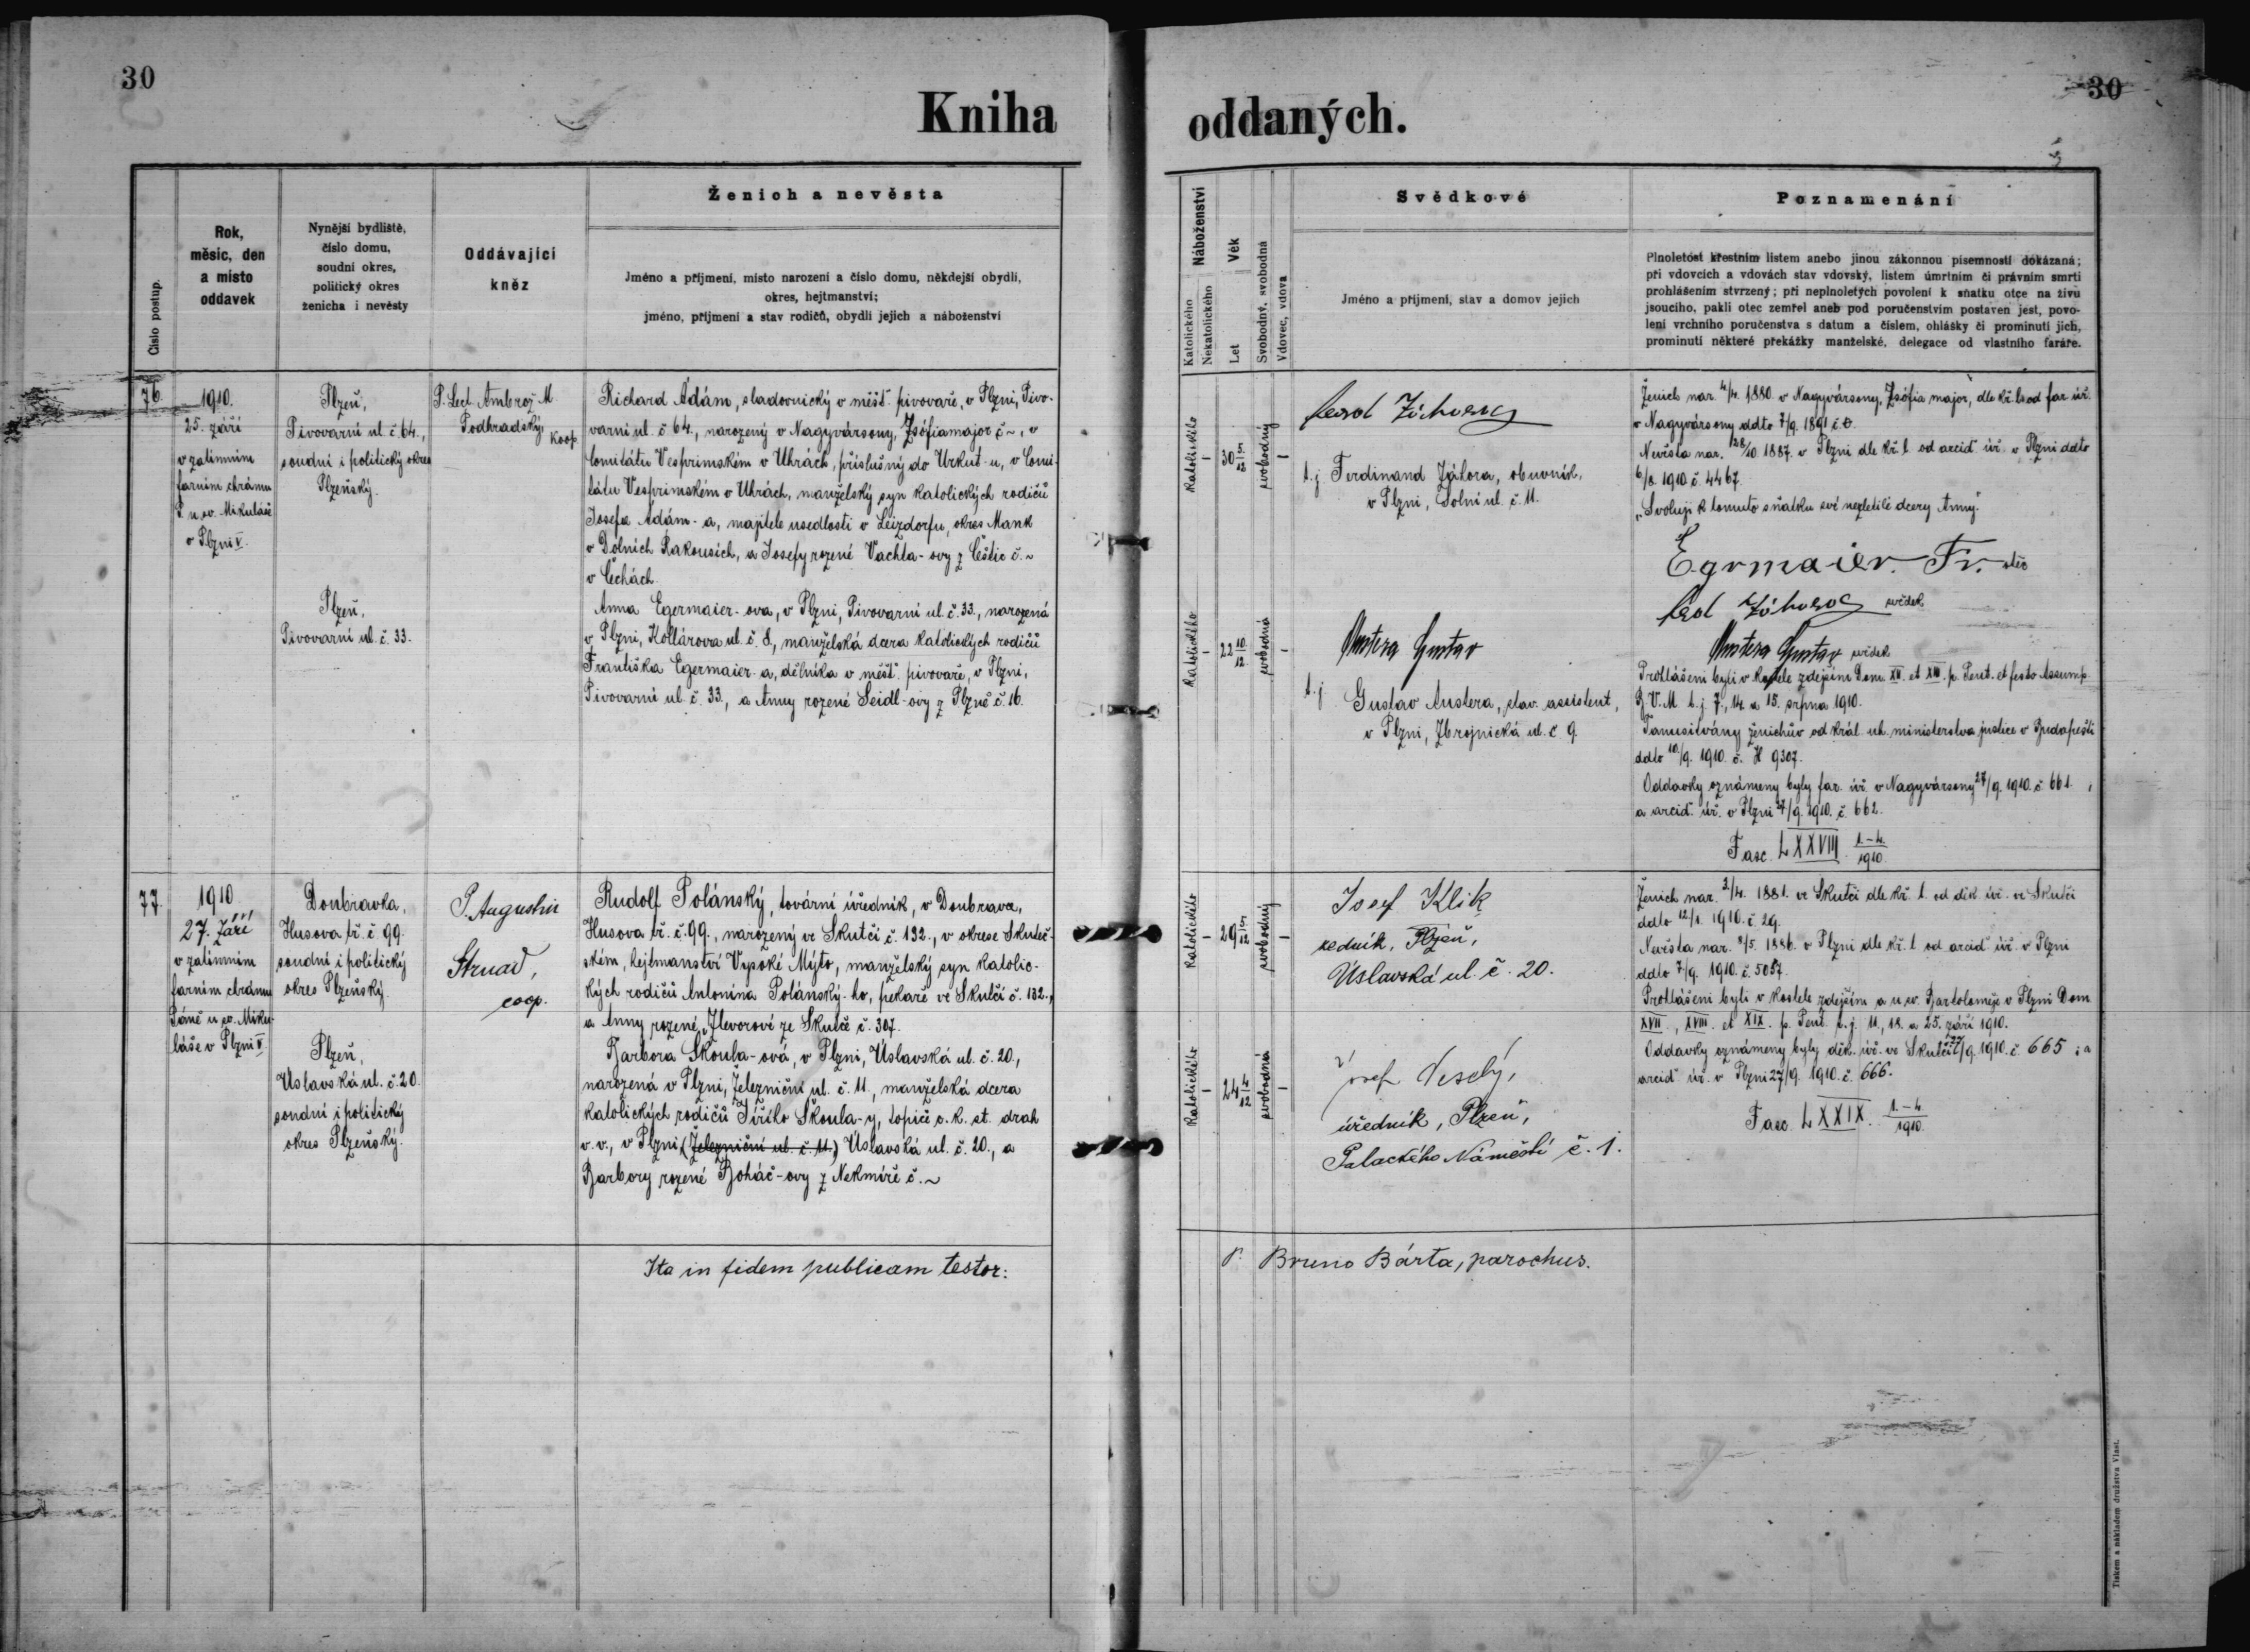 30
Kniha
oddaných.
30
Číslo postup.
Rok,
měsíc, den
a místo
oddavek
Nynější bydliště,
číslo domu,
soudní okres,
politický okres
ženicha i nevěsty
Oddávající
kněz
Ženich a nevěsta
Jméno a příjmení, místo narození a číslo domu, někdejší obydlí,
okres, hejtmanství;
jméno, příjmení a stav rodičů, obydlí jejich a náboženství
Náboženství
Katolického
Nekatolického
Věk
Let
Svobodný, svobodná
Vdovec, vdova
Svědkové
Jméno a příjmení, stav a domov jejich
Poznamenání
Plnoletost křestním listem anebo jinou zákonnou písemností dokázaná;
při vdovcích a vdovách stav vdovský, listem úmrtním či právním smrti
prohlášením stvrzený; při neplnoletých povolení k sňatku otce na živu
jsoucího, pakli otec zemřel aneb pod poručenstvím postaven jest, povo-
lení vrchního poručenstva s datum a číslem, ohlášky či prominutí jich,
prominutí některé překážky manželské, delegace od vlastního faráře.
76.
1910.
25. září
v zatimním
farním chrámu
P. u sv. Mikuláše
v Plzni V.
Plzeň,
Pivovarní ul. č 64.,
soudní i politický okres
Plzeňský.
Plzeň,
Pivovarní ul. č. 33.
P. Lect. Ambrož M.
Podhradský,
Koop.
Richard Ádám, sladovnický v měšť. pivovaře, v Plzni, Pivo-
varní ul. č 64., narozený v Nagyvársony, Zsófiamajor č ~, v
Comitátu Vesprimském v Uhrách, příslušný do Urkut-u, v Comi-
tátu Vesprimském v Uhrách, manželský syn katolických rodičů
Josefa Ádám-a, majitele usedlosti v Leizdorfu, okres Mank
v Dolních Rakousích, a Josefy rozené Vachta-ovy z Češtic č. ~
v Čechách.
Anna Egermaier-ova, v Plzni, Pivovarní ul. č. 33., narozená
v Plzni, Kollárova ul. č. 8., manželská dcera katolických rodičů
Františka Egermaier-a, dělníka v měšť. pivovaře, v Plzni,
Pivovarní ul. č. 33., a Anny rozené Seidl-ovy z Plzně č. 16.
Katolického
–
30 5/12
svobodný
–
Katolického
–
22 10/12
svobodná
–
t.j. Ferdinand Záhora, obuvník,
v Plzni, Solní ul. č. 11.
Austera Gustav
t.j.
Gustav Austera, stav. assistent,
v Plzni, Zbrojnická ul. č 9.
Ženich nar. 4/4. 1880. v Nagyvársony, Zsófia major, dle kř. l. od far. úř.
v Nagyvársony ddto 7/9. 1891 č
Nevěsta nar. 28/10. 1887. v Plzni dle kř. l. od arcid. úř. v Plzni ddto
6/8. 1910. č. 4467.
„Svoluji k tomuto sňatku své nezletilé dcery Anny."
Egrmaier. Fr. otec
svědek
Austera Gustav svědek
Prohlášeni byli v kostele zdejším Dom. XII. et XIII. p. Pent. et festo Assump.
B. V. M. t. j. 7., 14. a 15. srpna 1910.
Tanusitvány ženichův od král. uh. ministerstva justice v Budapešti
ddto 10/9. 1910. č. H 9307.
Oddavky oznámeny byly far. úř. v Nagyvársony 27/9. 1910. č. 661. ;
a arcid. úř. v Plzni 27/9. 1910. č. 662.
Fasc. LXXVIII. 1.–4./1910.
77.
1910.
27. září
v zatimním
farním chrámu
Páně u sv. Miku-
láše v Plzni V.
Doubravka,
Husova tř. č 99.
soudní i politický
okres Plzeňský.
Plzeň,
Úslavská ul. č. 20.
soudní i politický
okres Plzeňský.
P. Augustin
Strnad,
coop.
Rudolf Polánský, tovární úředník, v Doubravce,
Husova tř. č. 99., narozený ve Skutči č. 132., v okrese Skuteč-
ském, hejtmanství Vysoké Mýto, manželský syn katolic-
kých rodičů Antonína Polánský-ho, pekaře ve Skutči č. 132.,
a Anny rozené Zlevorové ze Skutče č. 307.
Barbora Škoula-ová, v Plzni, Úslavská ul. č. 20.,
narozená v Plzni, Železniční ul. č. 11., manželská dcera
katolických rodičů Jiřího Škoula-y, topiče c. k. st. drah
v. v., v Plzni, (Železniční ul. č. 11.) Úslavská ul. č. 20., a
Barbory rozené Boháč-ovy z Nekmíře č. ~
Katolického
–
29 5/12
svobodný
–
Katolického
–
24 4/12
svobodná
–
Josef Klik
zedník, Plzeň,
Úslavská ul. č. 20.
Josef Veselý,
úředník, Plzeň,
Palackého Náměstí č. 1.
Ženich nar. 2/4. 1881. ve Skutči dle kř. l. od děk. úř. ve Skutči
ddto 12/1. 1910. č. 29.
Nevěsta nar. 8/5. 1886. v Plzni dle kř. l. od arcid. úř. v Plzni
ddto 7/9. 1910. č. 5057.
Prohlášeni byli v kostele zdejším a u sv. Bartoloměje v Plzni Dom.
XVII., XVIII. et XIX. p. Pent. t. j. 11., 18. a 25. září 1910.
Oddavky oznámeny byly děk. úř. ve Skutči 27/9. 1910. č. 665 ; a
arcid. úř. v Plzni 27/9. 1910. č. 666.
Fasc. LXXIX. 1.–4/1910.
Ita in fidem publicam testor:
P. Bruno Bárta, parochus.
Tiskem a nákladem družstva Vlast.